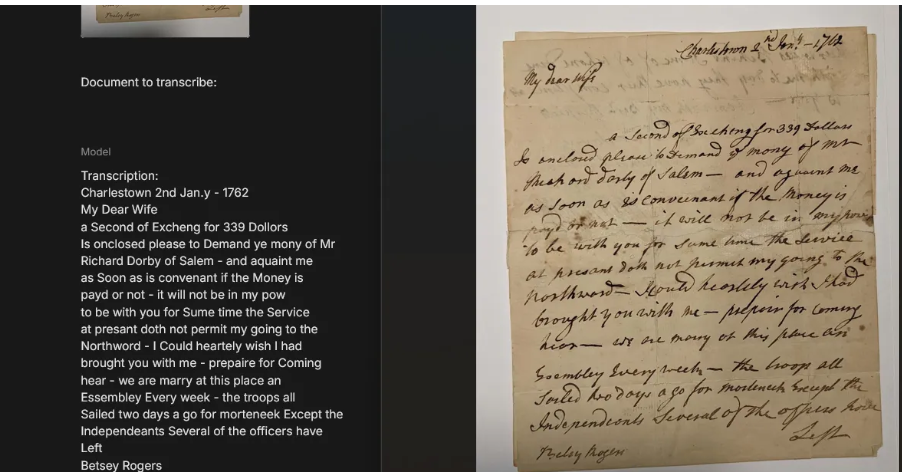 Betsy Rogers
Document to transcribe:
Model
Transcription:
Charlestown 2nd Jan.y - 1762
My Dear Wife
a Second of Excheng for 339 Dollors
Is onclosed please to Demand ye mony of Mr
Richard Dorby of Salem - and aquaint me
as Soon as is convenant if the Money is
payd or not - it will not be in my pow
to be with you for Sume time the Service
at presant doth not permit my going to the
Northword - I Could heartely wish I had
brought you with me - prepaire for Coming
hear - we are marry at this place an
Essembley Every week - the troops all
Sailed two days a go for morteneek Except the
Independeants Several of the officers have
Left
Betsey Rogers
Charlestown 2nd Jany - 1762
My dear Wife
a Second of Excheng for 339 Dollars
Is onclosed please to Demand ye mony of Mr
darby of Salem — and aquaint me
as soon as is convenant if the Money is
payd or not — it will not be in my pow
to be with you for Sume time the Service
at presant doth not permit my going to the
Northward — I Could heartely wish I had
brought you with me — prepair for Coming
hear — we are marey at this place an
Essembley Every week — the troops all
Sailed two days a go for morteneek Except the
Independeants Several of the officers have
Left
Betsy Rogers